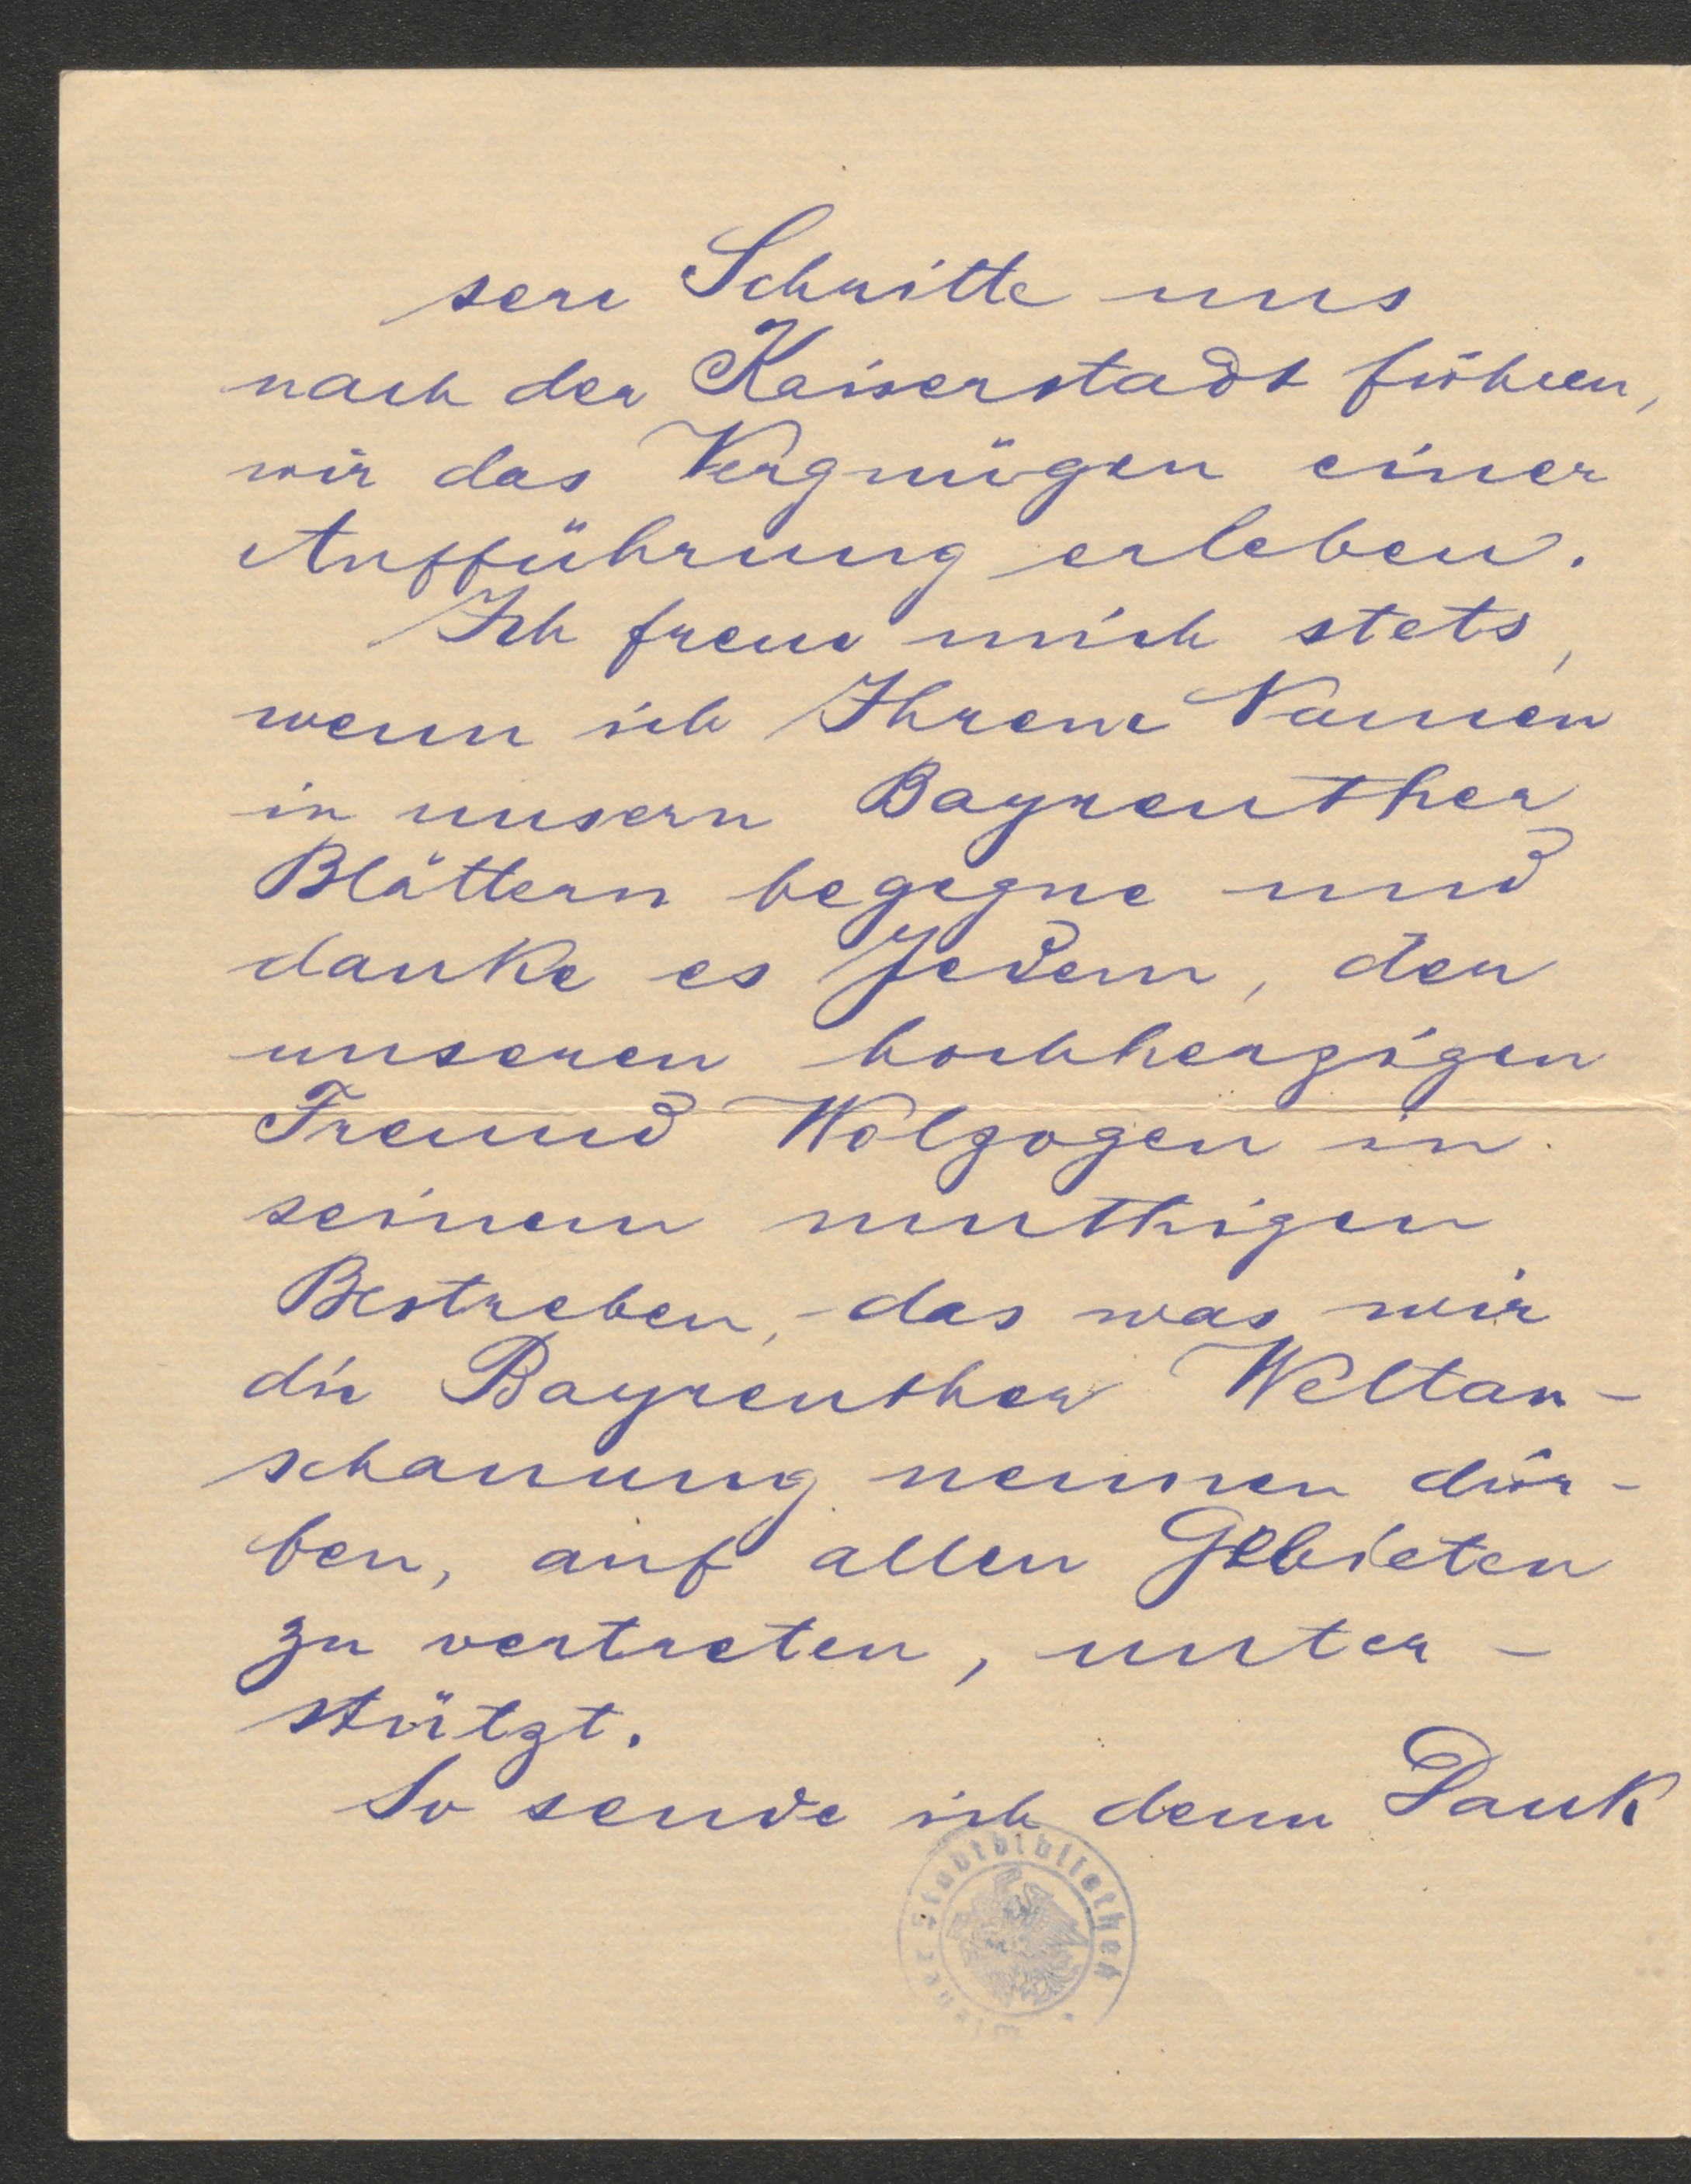 sere Schritte uns
nach der Kaiserstadt führen,
wir das Vergnügen einer
Aufführung erleben.
Ich freue mich stets,
wenn ich Ihrem Namen
in unsern Bayreuther
Blättern begegne und
danke es Jedem, der
unseren hochherzigen
Freund Wolzogen in
seinem muthigen
Bestreben, das was wir
die Bayreuther Weltan-
schauung nennen dür-
fen, auf allen Gebieten
zu vertreten, unter-
stützt.
So sende ich denn Dank
Wiener Stadtbibliothek